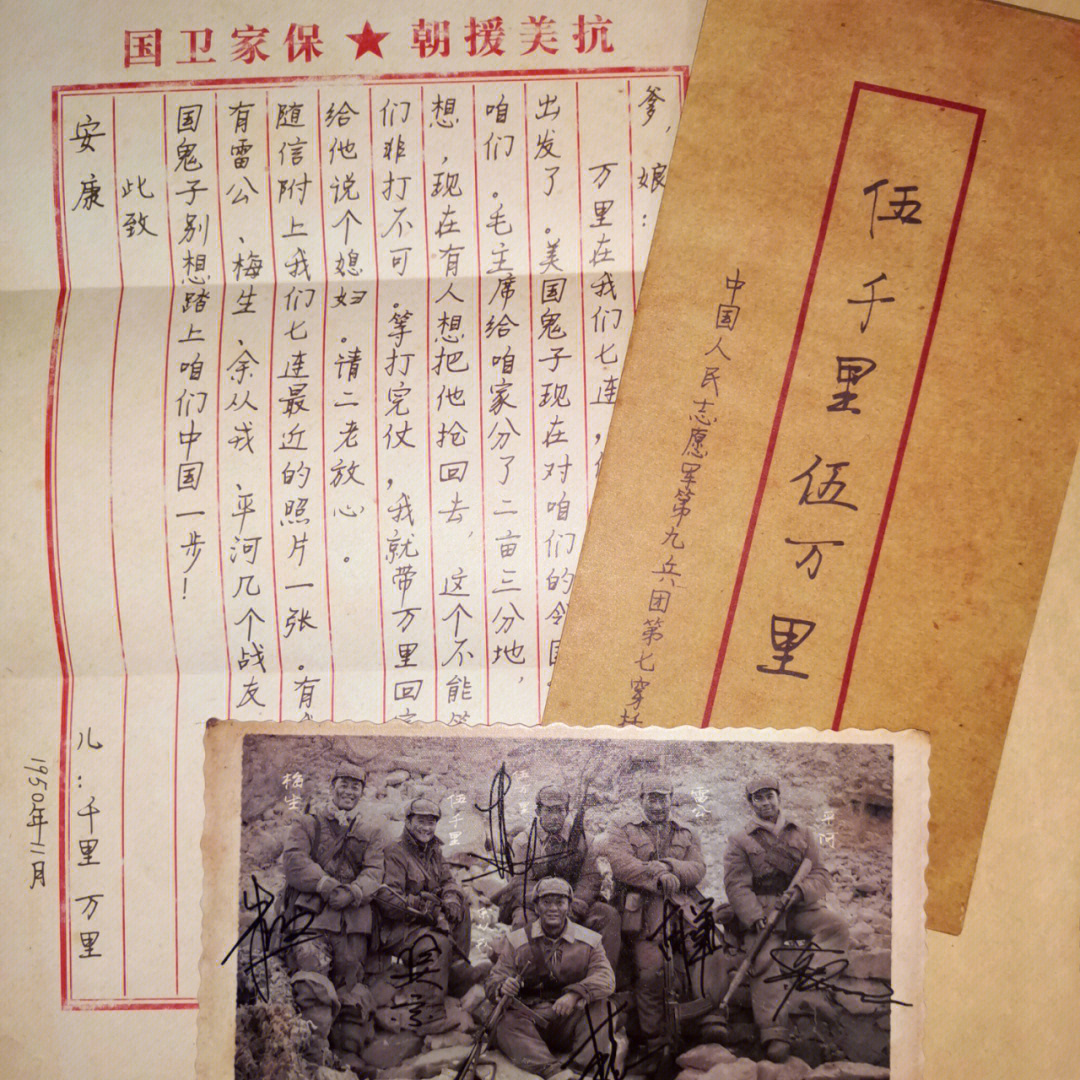 抗美援朝★保家卫国
爹,娘:
万里在我们七连,
出发了。美国鬼子现在对咱们的邻国
咱们。毛主席给咱家分了二亩三分地,
想,现在有人想把他抢回去,这个不能
们非打不可。等打完仗,我就带万里回
给他说个媳妇。请二老放心。
随信附上我们七连最近的照片一张。有
有雷公、梅生、余从戎、平河几个战友
国鬼子别想踏上咱们中国一步!
此致
安康
儿:千里 万里
1950年11月
伍千里 伍万里
中国人民志愿军第九兵团第七穿
梅生
伍千里
伍万里
雷公
平河